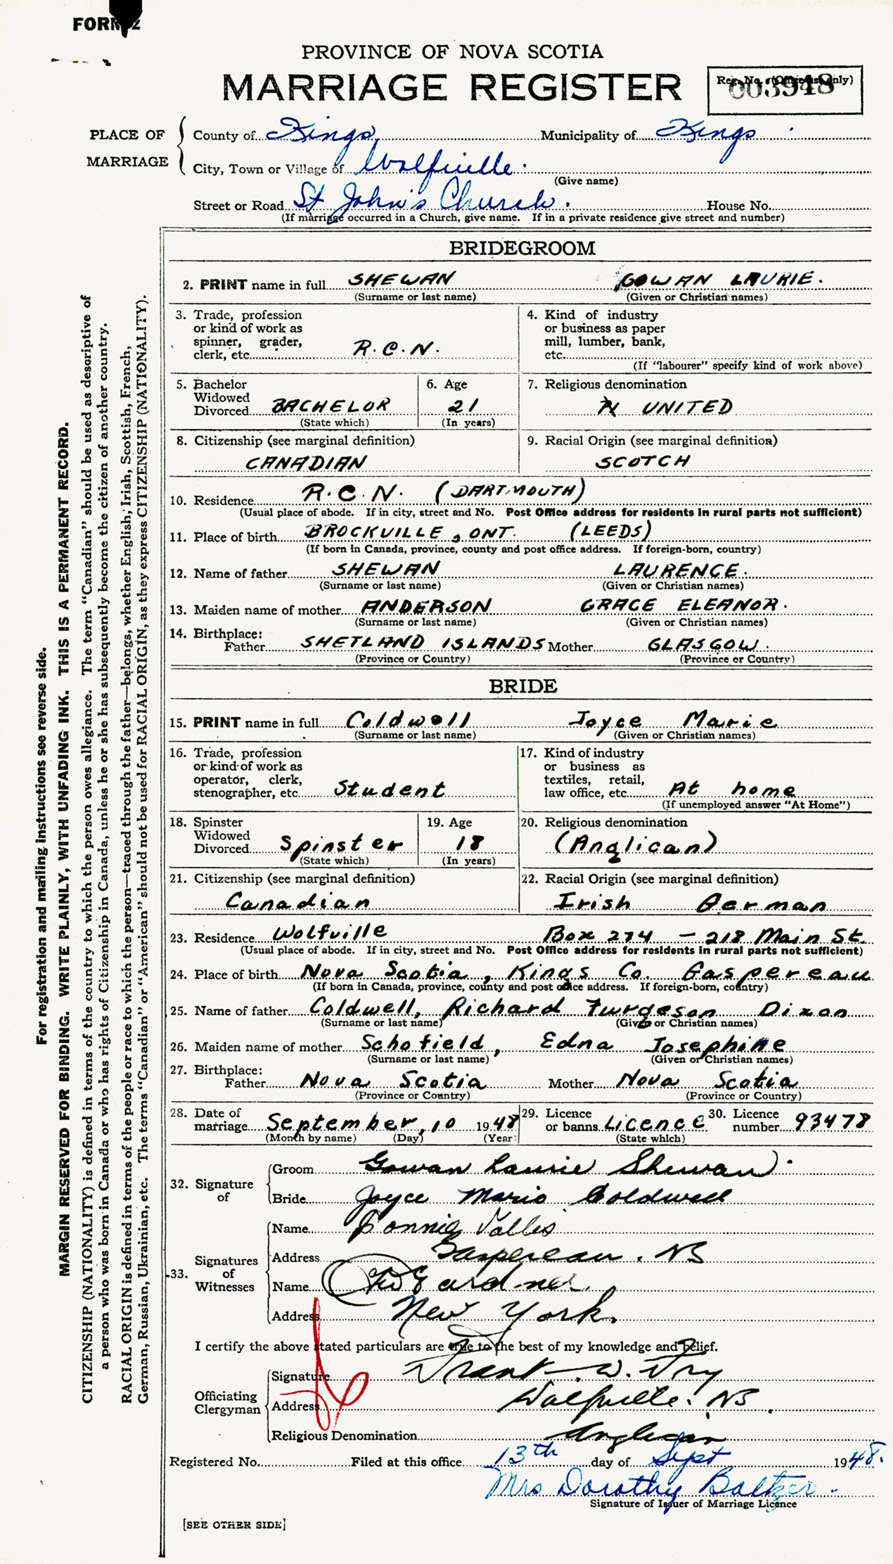 FORM
PROVINCE OF NOVA SCOTIA
MARRIAGE REGISTER
Reg. No. (Office use only)
003948
PLACE OF MARRIAGE
County of Kings Municipality of Kings
City, Town or Village of Wolfville.
(Give name)
Street or Road St John's Church. House No.
(If marriage occurred in a Church, give name. If in a private residence give street and number)
BRIDEGROOM
2. PRINT name in full SHEWAN GOWAN LAURIE.
(Surname or last name) (Given or Christian names)
3. Trade, profession 4. Kind of industry
or kind of work as or business as paper
spinner, grader, mill, lumber, bank,
clerk, etc. R.C.N. etc.
(If "labourer" specify kind of work above)
5. Bachelor 6. Age 7. Religious denomination
Widowed
Divorced BACHELOR 21 UNITED
(State which) (In years)
8. Citizenship (see marginal definition) 9. Racial Origin (see marginal definition)
CANADIAN SCOTCH
10. Residence R.C.N. (DARTMOUTH)
(Usual place of abode. If in city, street and No. Post Office address for residents in rural parts not sufficient)
11. Place of birth BROCKVILLE, ONT. (LEEDS)
(If born in Canada, province, county and post office address. If foreign-born, country)
12. Name of father SHEWAN LAURENCE.
(Surname or last name) (Given or Christian names)
13. Maiden name of mother ANDERSON GRACE ELEANOR.
(Surname or last name) (Given or Christian names)
14. Birthplace:
Father SHETLAND ISLANDS Mother GLASGOW.
(Province or Country) (Province or Country)
BRIDE
15. PRINT name in full Coldwell Joyce Marie
(Surname or last name) (Given or Christian names)
16. Trade, profession 17. Kind of industry
or kind of work as or business as
operator, clerk, textiles, retail,
stenographer, etc. Student law office, etc. At home
(If unemployed answer "At Home")
18. Spinster 19. Age 20. Religious denomination
Widowed
Divorced Spinster 18 (Anglican)
(State which) (In years)
21. Citizenship (see marginal definition) 22. Racial Origin (see marginal definition)
Canadian Irish German
23. Residence Wolfville Box 274 - 218 Main St.
(Usual place of abode. If in city, street and No. Post Office address for residents in rural parts not sufficient)
24. Place of birth Nova Scotia, Kings Co. Gaspereau
(If born in Canada, province, county and post office address. If foreign-born, country)
25. Name of father Coldwell, Richard Furgeson Dixon
(Surname or last name) (Given or Christian names)
26. Maiden name of mother Schofield, Edna Josephine
(Surname or last name) (Given or Christian names)
27. Birthplace:
Father Nova Scotia Mother Nova Scotia
(Province or Country) (Province or Country)
28. Date of 29. Licence 30. Licence
marriage September, 10 1948 or banns Licence number 93478
(Month by name) (Day) (Year) (State which)
32. Signature of
Groom Gowan Laurie Shewan.
Bride Joyce Marie Coldwell
33. Signatures of Witnesses
Name Connie Vallis
Address Gaspereau. NS
Name Gardner
Address New York.
I certify the above stated particulars are true to the best of my knowledge and belief.
Officiating Clergyman
Signature Frank W. Fry
Address Wolfville. NS.
Religious Denomination Anglican
Registered No. Filed at this office 13th day of Sept 1948.
Mrs Dorothy Baltzer.
Signature of Issuer of Marriage Licence
[SEE OTHER SIDE]
For registration and mailing instructions see reverse side.
MARGIN RESERVED FOR BINDING. WRITE PLAINLY, WITH UNFADING INK. THIS IS A PERMANENT RECORD.
CITIZENSHIP (NATIONALITY) is defined in terms of the country to which the person owes allegiance. The term "Canadian" should be used as descriptive of
a person who was born in Canada or who has rights of Citizenship in Canada, unless he or she has subsequently become the citizen of another country.
RACIAL ORIGIN is defined in terms of the people or race to which the person—traced through the father—belongs, whether English, Irish, Scottish, French,
German, Russian, Ukrainian, etc. The terms "Canadian" or "American" should not be used for RACIAL ORIGIN, as they express CITIZENSHIP (NATIONALITY).